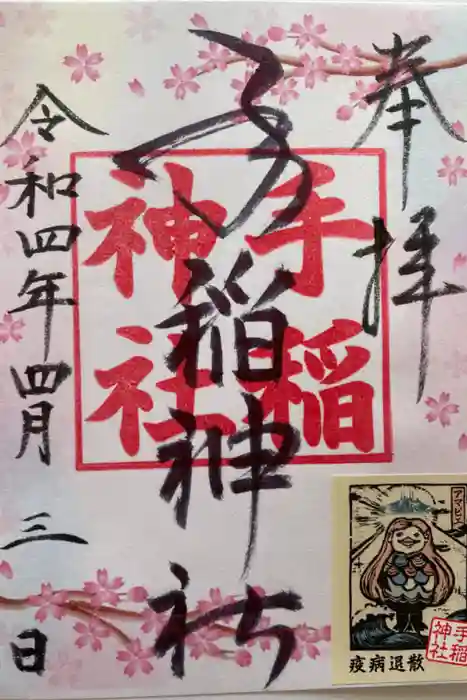 奉拝
手稲神社
手稲
神社
令和四年四月三日
アマビエ
手稲
神社
疫病退散